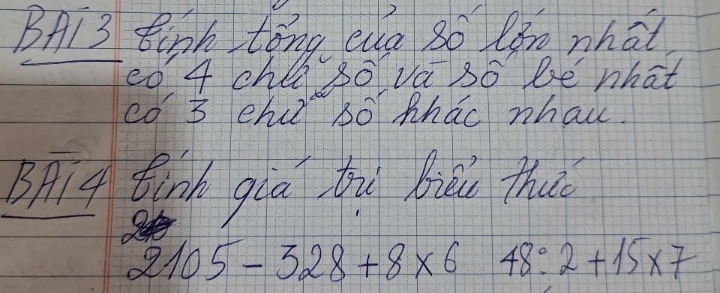 BÀI 3 tính tổng của số lớn nhất
có 4 chữ số và số bé nhất
có 3 chữ số khác nhau.
BÀI 4 tính giá trị biểu thức
2105 - 328 + 8 x 6 48 : 2 + 15 x 7